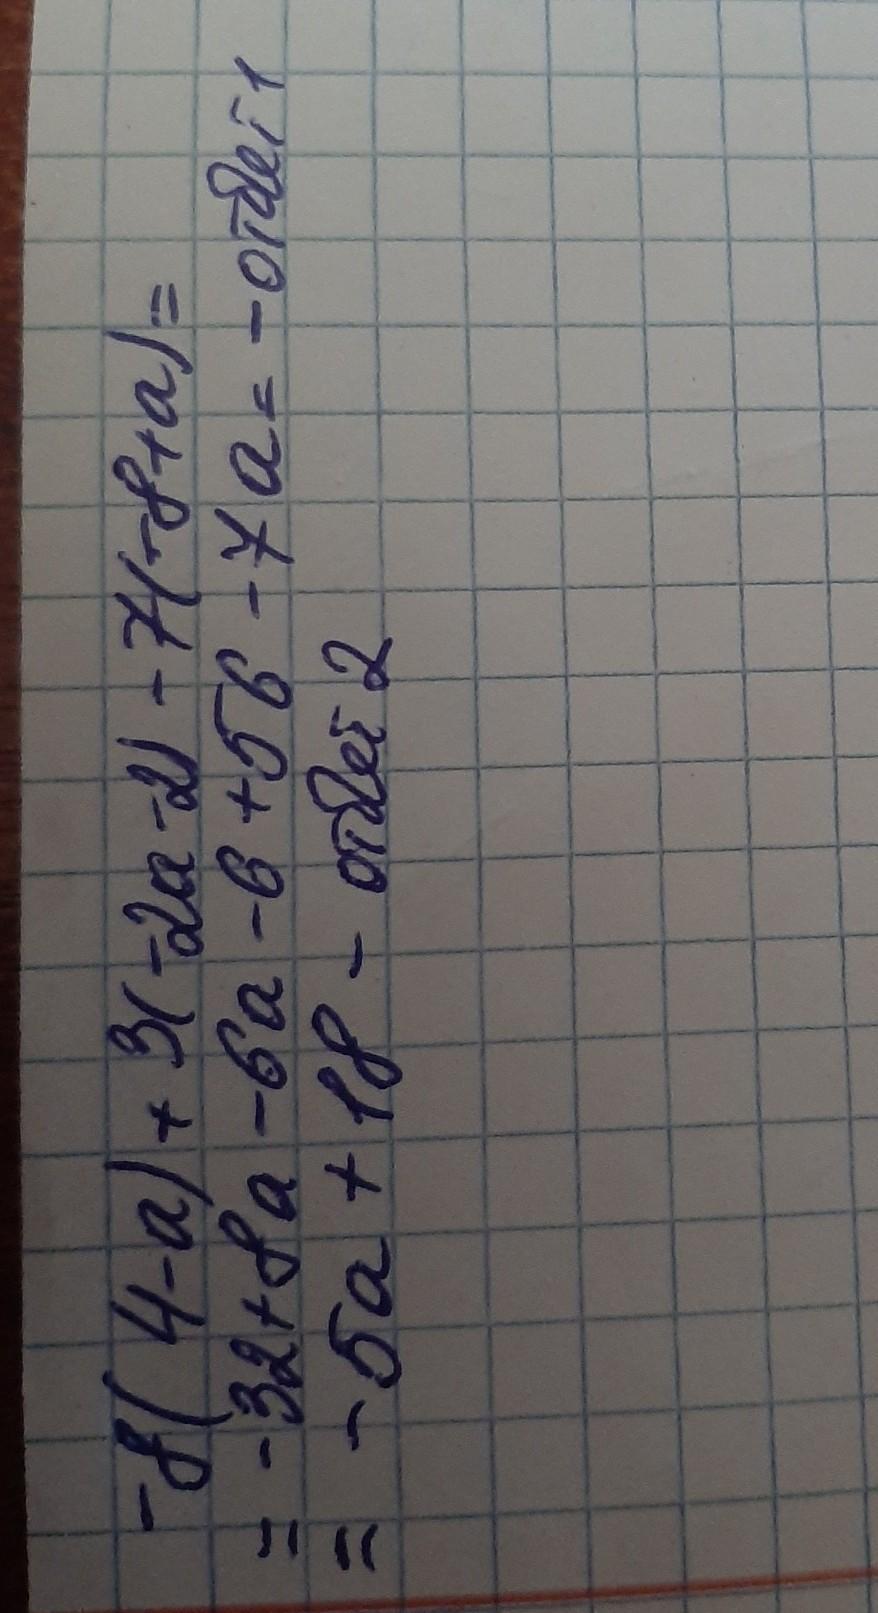 -8(4-a)+3(-2a-2)-7(-8+a)=
=-32+8a-6a-6+56-7a= - ответ 1
= -5a+18 - ответ 2